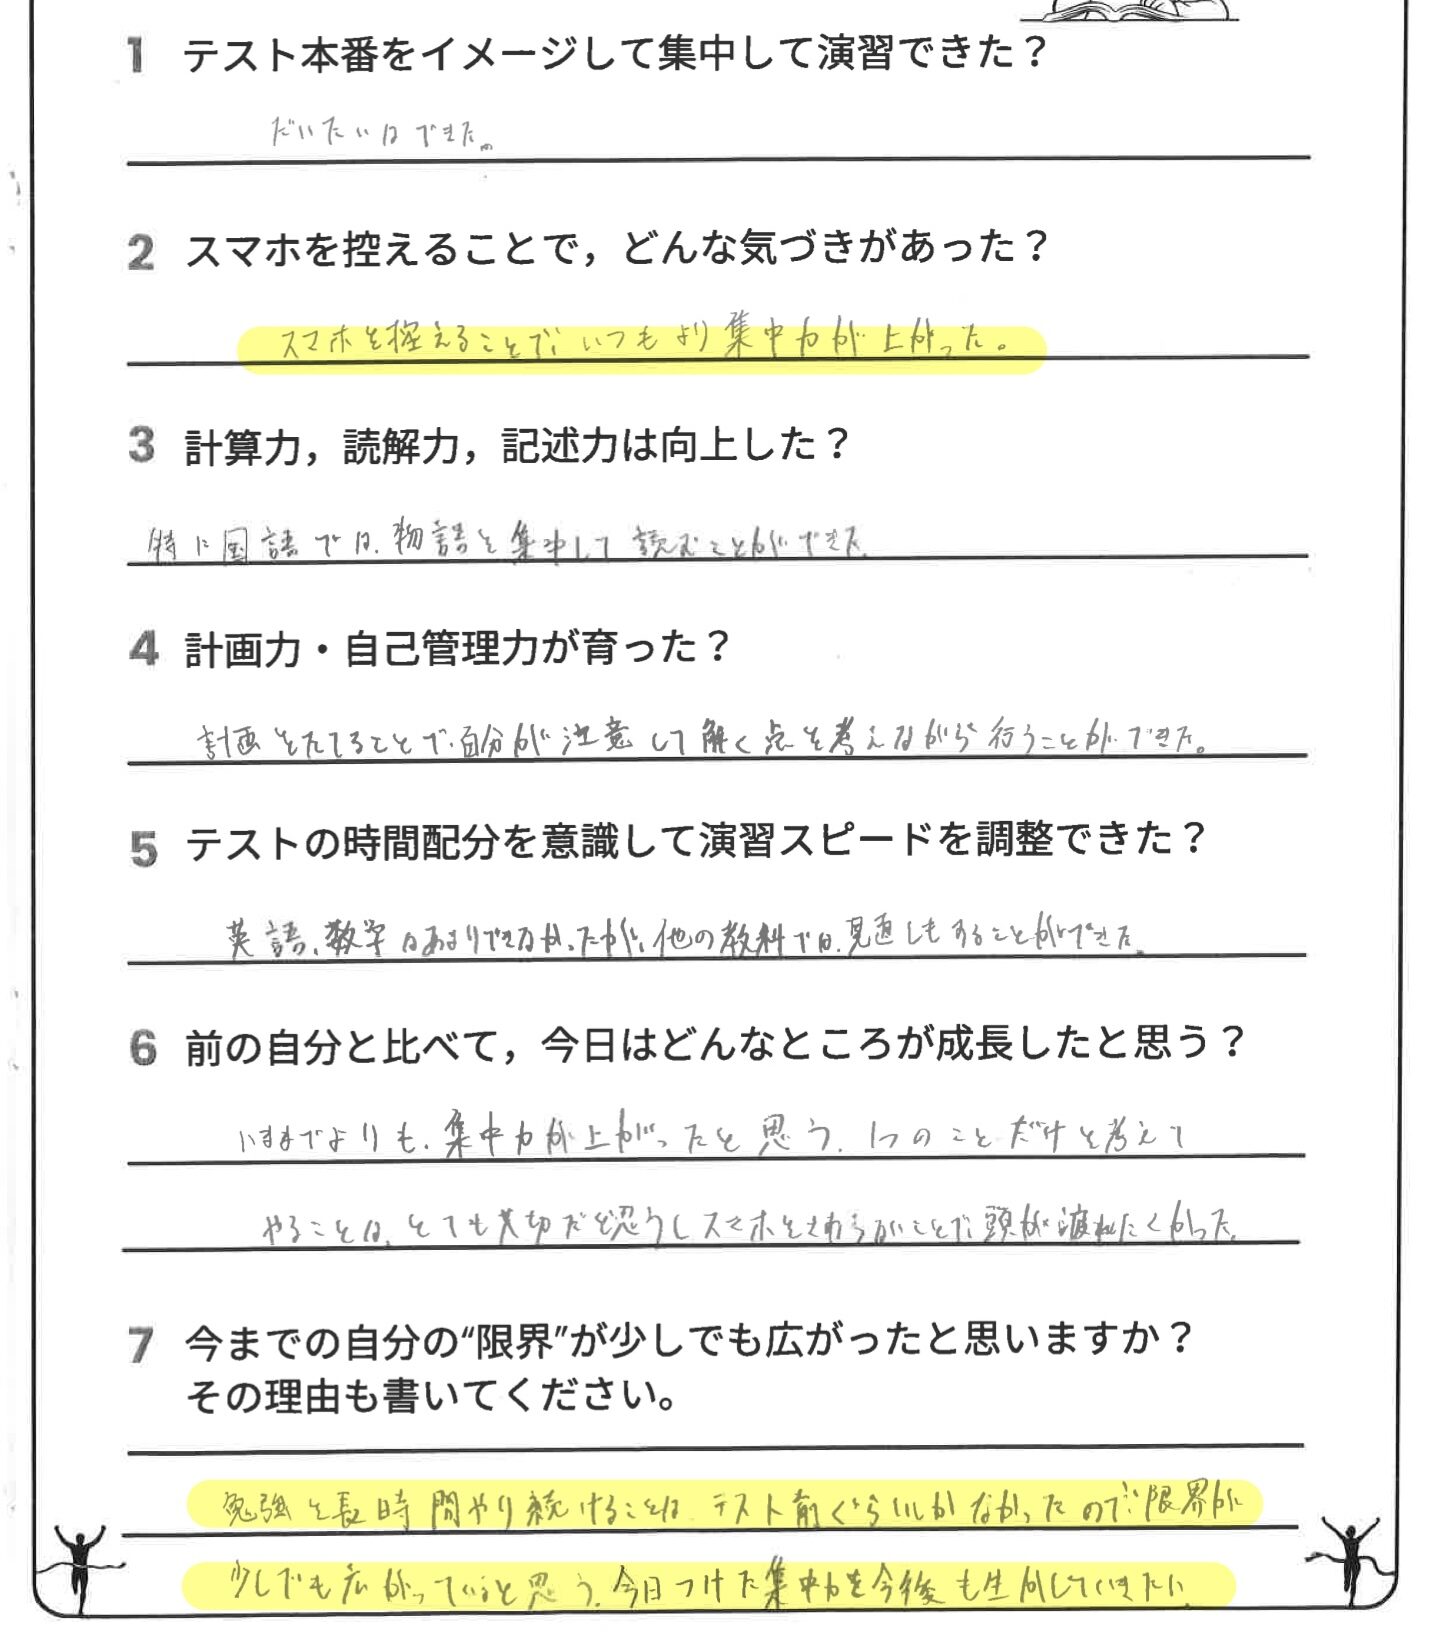 1 テスト本番をイメージして集中して演習できた？
だいたいはできた。
2 スマホを控えることで，どんな気づきがあった？
スマホを控えることで、いつもより集中力が上がった。
3 計算力，読解力，記述力は向上した？
特に国語では、物語を集中して読むことができた。
4 計画力・自己管理力が育った？
計画をたてることで、自分が注意して解く点を考えながら行うことができた。
5 テストの時間配分を意識して演習スピードを調整できた？
英語、数学はあまりできなかったが、他の教科では、見直しもすることができた。
6 前の自分と比べて，今日はどんなところが成長したと思う？
いままでよりも、集中力が上がったと思う。1つのことだけを考えて
やることは、とても大切だと思うしスマホをさわらないことで、頭が疲れにくかった。
7 今までの自分の“限界”が少しでも広がったと思いますか？
その理由も書いてください。
勉強を長時間やり続けることは、テスト前ぐらいしかなかったので、限界が
少しでも広がっていると思う。今日つけた集中力を今後も生かしていきたい。